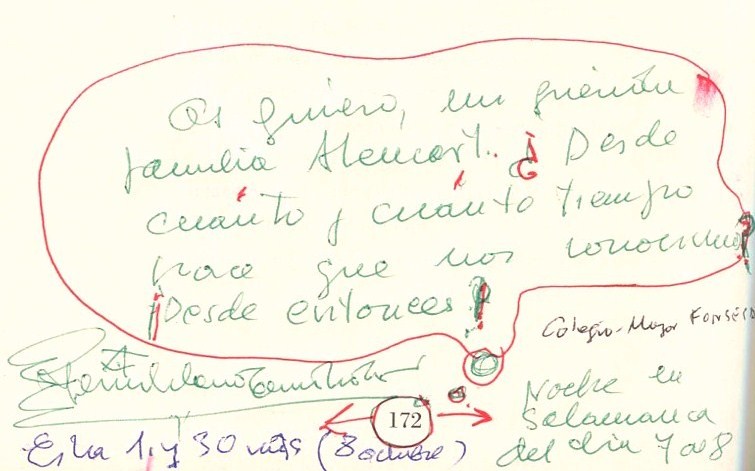 Os quiero, mi querida
familia Alencart.. ¿Desde
cuánto y cuánto tiempo
hace que nos conocemos?
¡Desde entonces!
Colegio-Mayor FONSECA
Noche en
Salamanca
del día 7 a 8
172
Es la 1 y 30 (8 octubre)